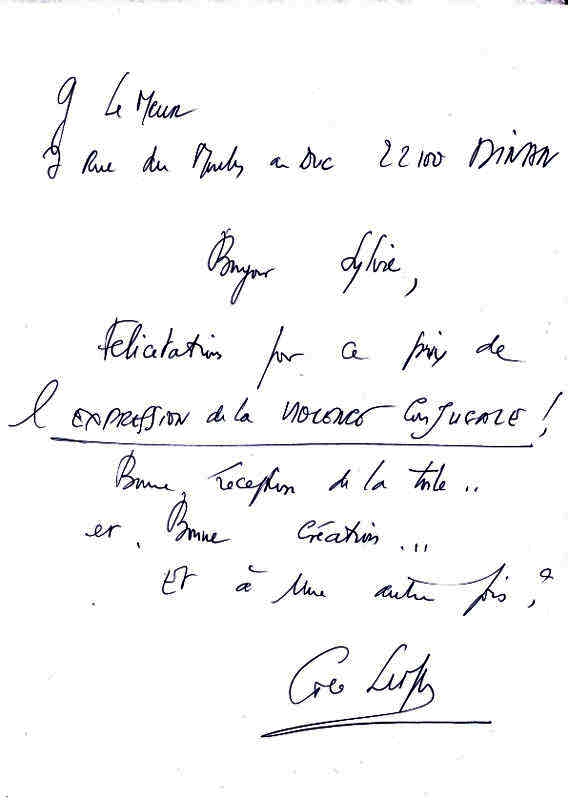 Le Meur
9 Rue du au Duc 22100 DINAN
Bonjour Sylvie,
Félicitations pour ce prix de
l'EXPRESSION de la VIOLENCE CONJUGALE !
Bonne réception de la toile ..
et Bonne Création ...
Et à Une autre fois, ?